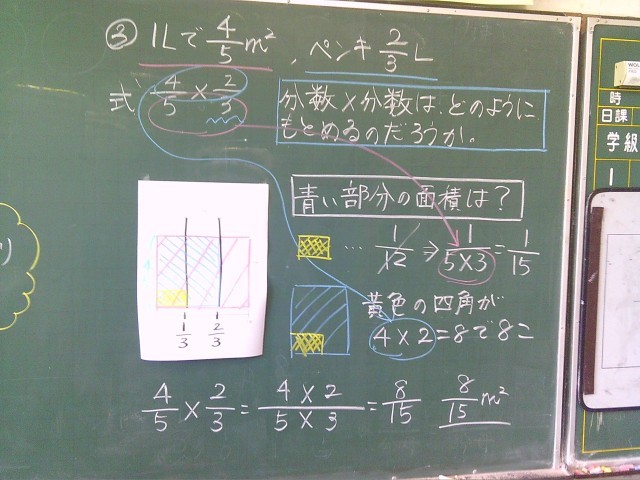 ③ 1Lで4/5m²、ペンキ2/3L
式 4/5×2/3
分数×分数は、どのように
もとめるのだろうか。
青い部分の面積は?
… 1/12 ⇒ 1/5×3=1/15
黄色の四角が
4×2=8で8こ
1/3 2/3
4/5×2/3=4×2/5×3=8/15 8/15m²
り
時
日課
学級
1